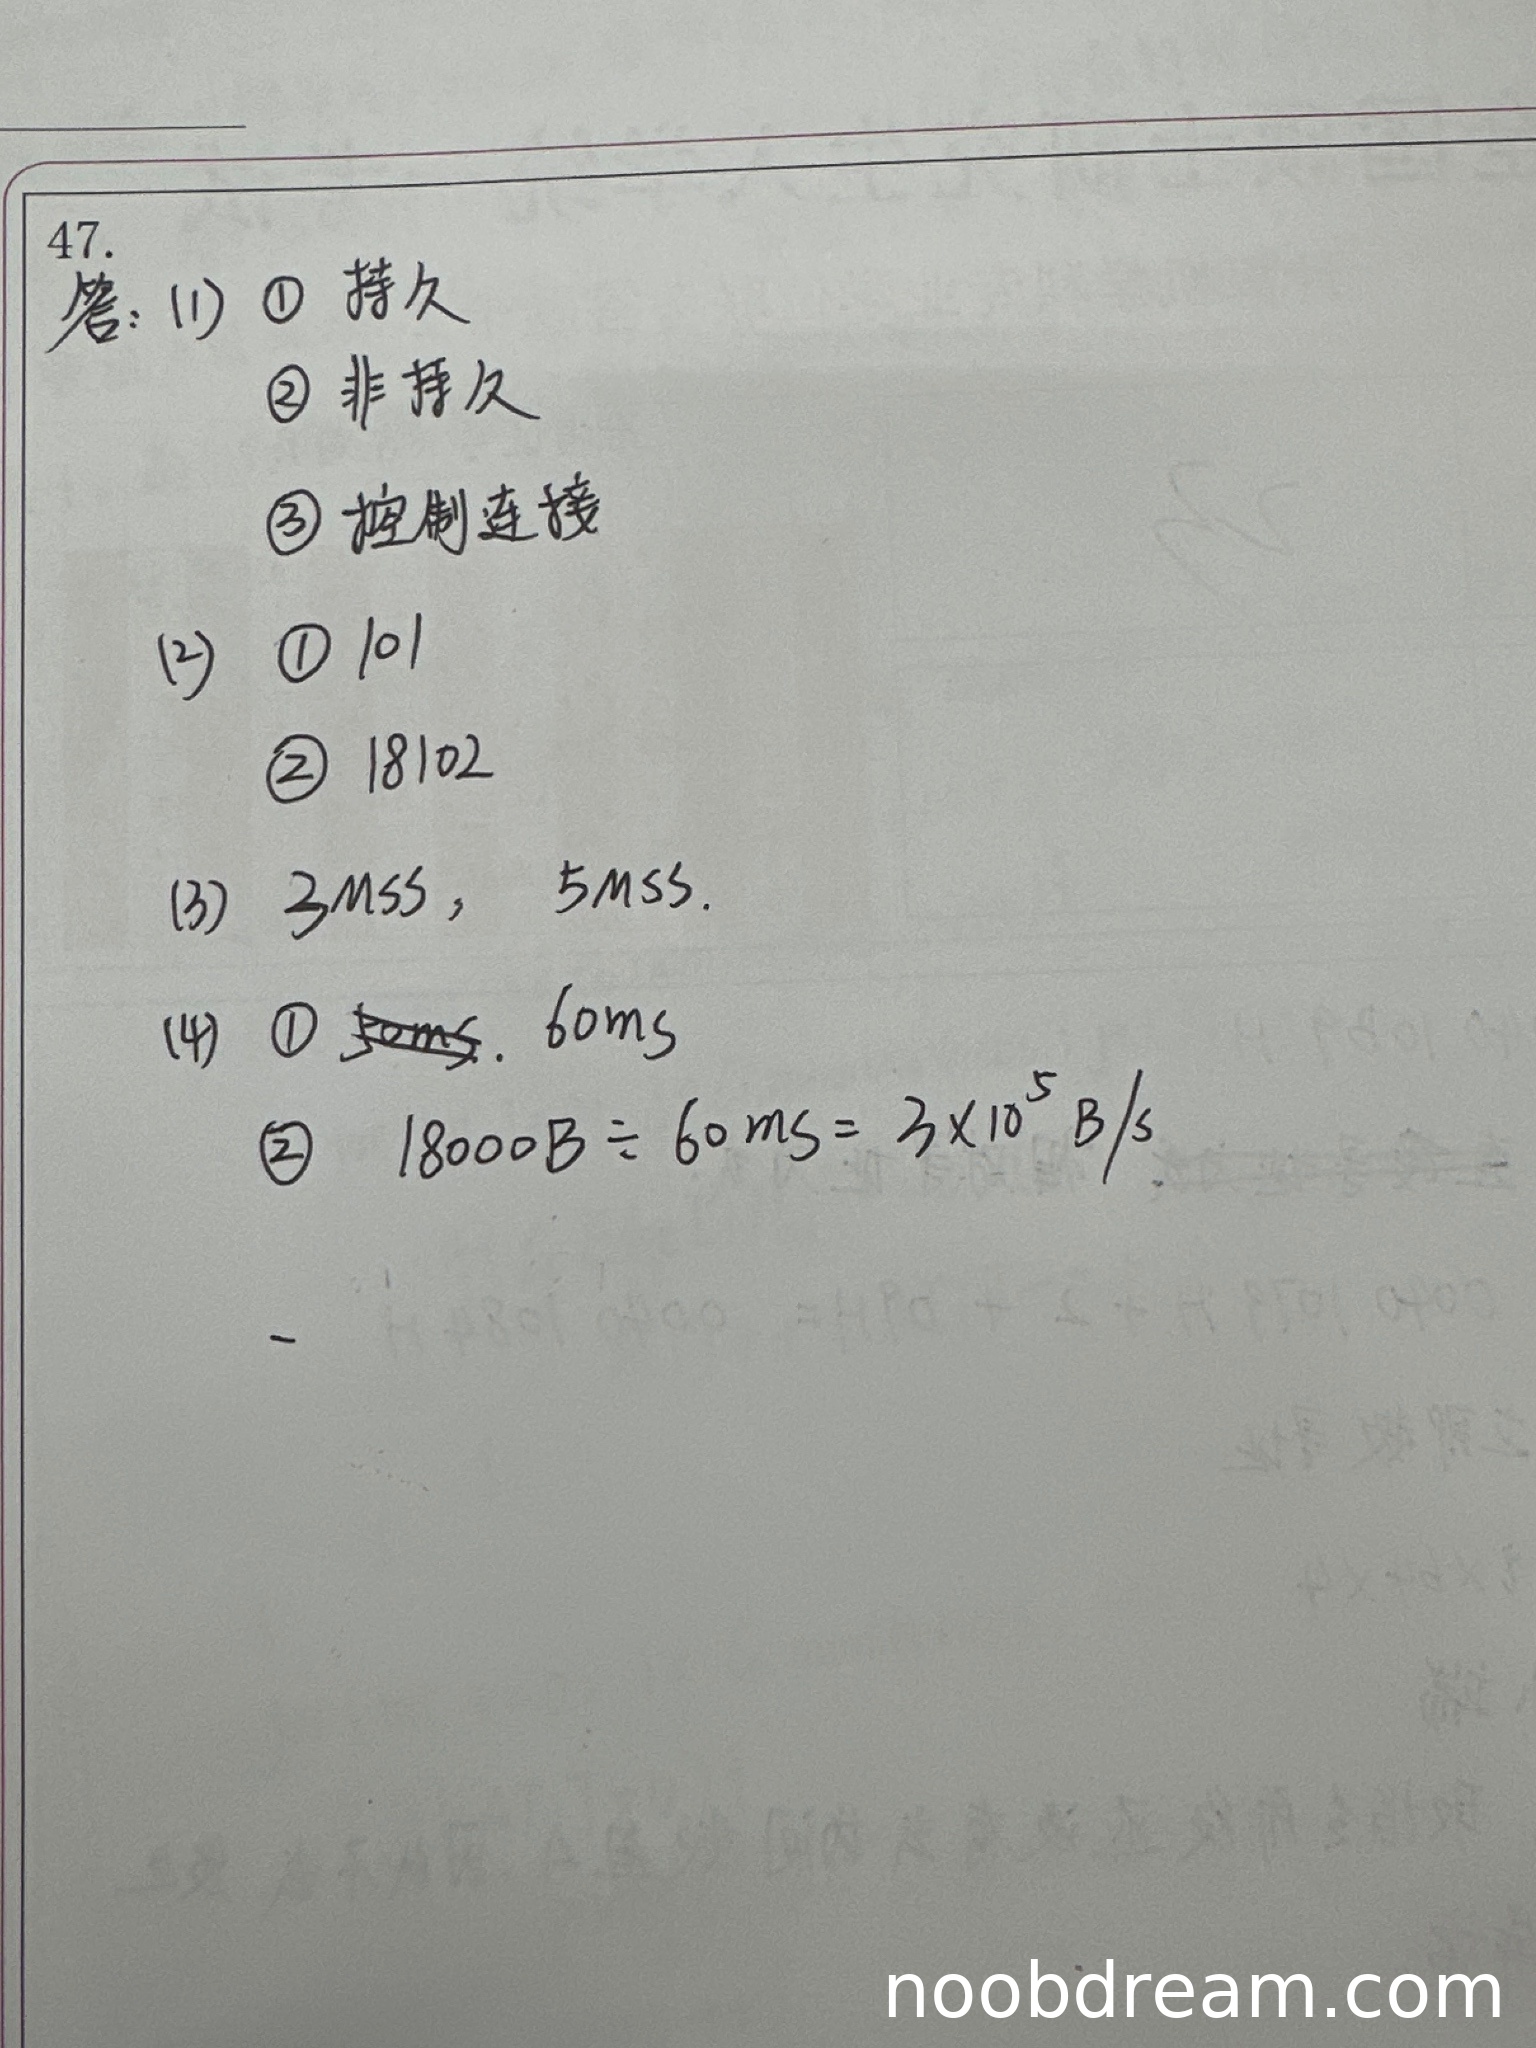 47.
答: (1) ① 持久
② 非持久
③ 控制连接
(2) ① 101
② 18102
(3) 3MSS, 5MSS.
(4) ① 50ms. 60ms
② 18000B ÷ 60ms = 3×10⁵ B/s.
noobdream.com